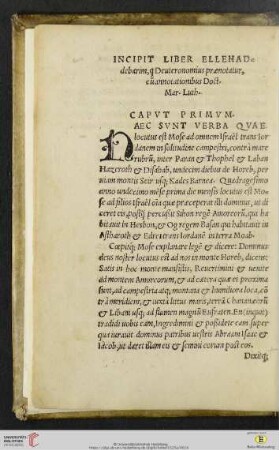 INCIPIT LIBER ELLEHAD-
debarim, q̃ Deuteronomius prænotatur,
cũ annotationibus Doct.
Mar. Luth.
CAPVT PRIMVM.
HAEC SVNT VERBA QVAE
locutus est Mose ad omnem Israel trans Ior
danem in solitudine campestri, contra mare
rubrũ, inter Paran & Thophel & Laban
Hazeroth & Disahab, undecim diebus de Horeb, per
uiam montis Seir usq; Kades Barnea. Quadragesimo
anno undecimo mẽse prima die mensis locutus est Mo-
se ad filios Israel oĩa quæ præceperat illi dominus, ut di
ceret eis, postq̃ percussit Sihon regẽ Amoreorũ, qui ha
bitauit in Hesbon, & Og regem Basan qui habitauit in
Astharoth & Edrei trans Iordanẽ in terra Moab.
Cœpitq; Mose explanare legẽ & dicere: Dominus
deus noster locutus est ad nos in monte Horeb, dicens:
Satis in hoc monte mansistis, Reuertimini & uenite
ad montem Amoreorum, & ad cætera quæ ei proxima
sunt, ad campestria atq; montana & humiliora loca, cõ
tra meridiem, & iuxta litus maris, terrã Chananæorũ
& Libani usq; ad flumen magnũ Eufraten. En (inquit)
tradidi uobis eam, ingredimini & possidete eam super
qua iurauit dominus patribus uestris Abraam Isaac &
Iacob, ut daret illam eis & semini eorum post eos.
Dixiq;